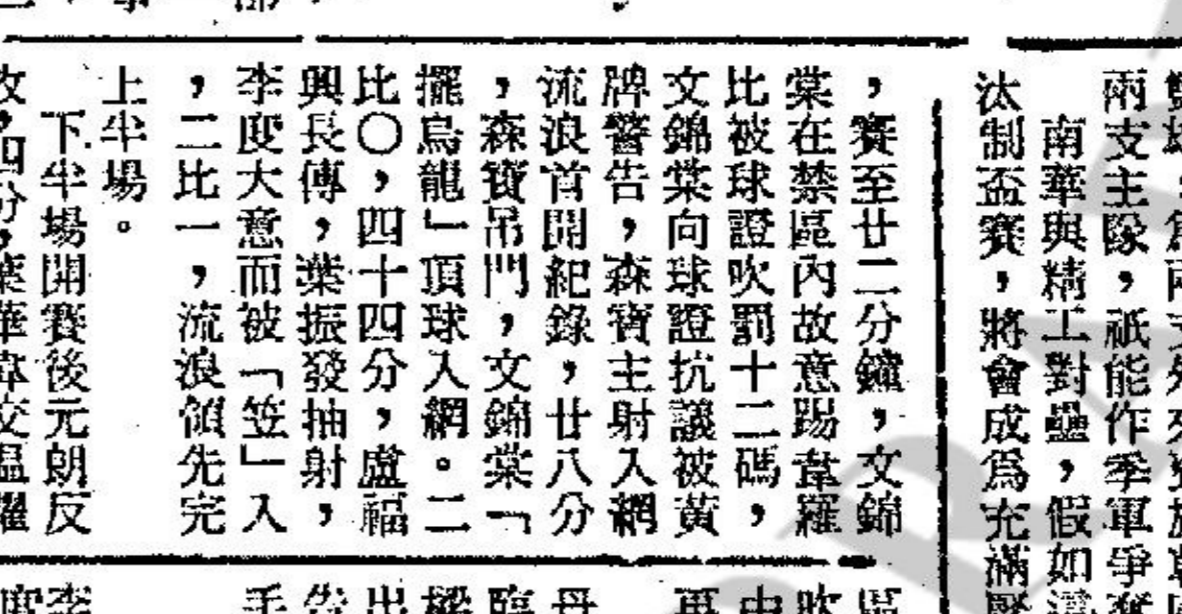 兩支主隊，祇能作季軍爭奪
南華與精工對壘，假如
汰制盃賽，將會成爲充滿
，賽至廿二分鐘，文錦
棠在禁區內故意踢韋羅
比被球證吹罰十二碼，
文錦棠向球證抗議被黃
牌警告，森寶主射入網
流浪首開紀錄，廿八分
，森寶吊門，文錦棠「
擺烏龍」頂球入網。二
比〇，四十四分，盧福
興長傳，葉振發抽射，
李度大意而被「笠」入
，二比一，流浪領先完
上半場。
下半場開賽後元朗反
攻，四分，葉華韋交溫耀